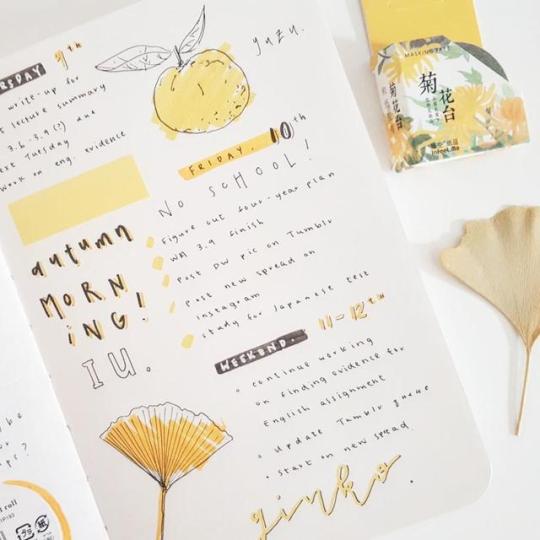 RSDAY 9th
write-up for
lecture summary
3.6-3.9(?) due
Tuesday
work on eng. evidence
autumn
MORN
ING!
IU.
yuzu.
FRIDAY. 10th
NO SCHOOL!
figure out four-year plan
WA 3.9 finish
post DW pic on Tumblr
post new spread on
Instagram
study for Japanese test
WEEKEND. 11-12th
continue working
on finding evidence for
English assignment
update Tumblr queue
start on new spread.
ginko
MASKING TAPE
菊花台
菊花台